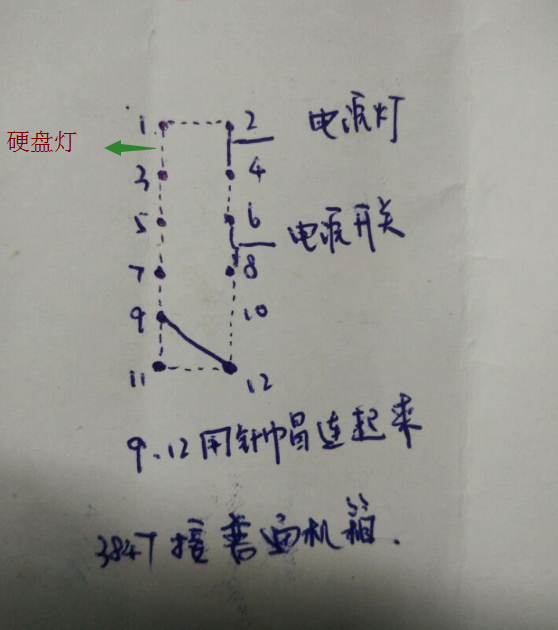 1 2 电源灯
硬盘灯
3 4
5 6 电源开关
7 8
9 10
11 12
9、12用针帽连起来
3847接普通机箱.